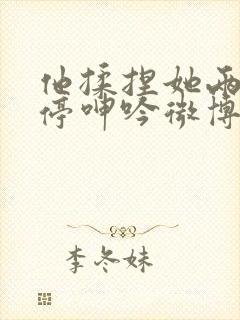 他揉捏她两
停呻吟微博
李冬妹